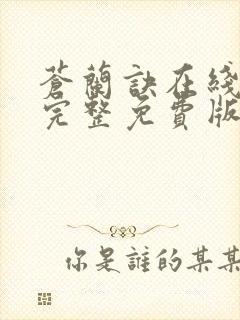 蒼蘭訣在綫
完整免費版
你是誰的某某